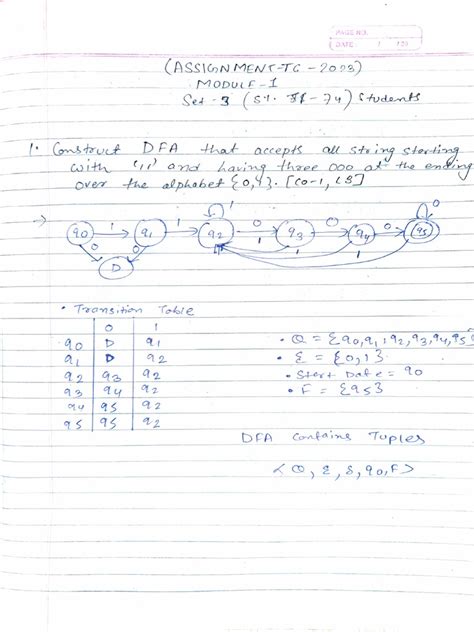 PAGE NO.
DATE / /20
(ASSIGNMENT-TC-2023)
MODULE-1
Set-3 (51-74) students
1. Construct DFA that accepts all string starting
with '11' and having three 000 at the ending
over the alphabet {0,1}. [CO-1, L3]
→ q0 1 q1 1 q2 1 0 q3 0 q4 0 q5 0
0 0 1 1 1
D
• Transition Table
0 1
q0 D q1
q1 D q2
q2 q3 q2
q3 q4 q2
q4 q5 q2
q5 q5 q2
• Q = {q0,q1,q2,q3,q4,q5}
• Σ = {0,1}
• Start Date = q0
• F = {q5}
DFA Contains Tuples
< Q, Σ, S, q0, F>